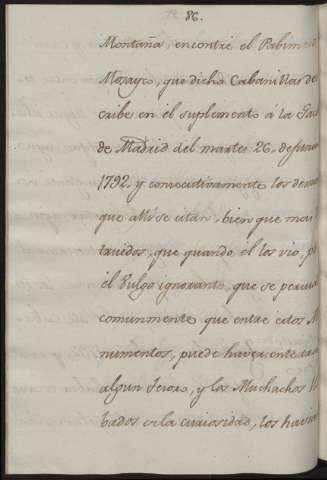 86.
Montaña, encontre el Pabim
Mosayco, que dicho Cabanillas des
cribe en el suplemento á la Gac
de Madrid del martes 26, de Junio
1792. y consecutivamente los demas
que alli se citan, bien que mas
truidos, que quando el los vio, p
el Vulgo ignorante, que se persua
comunmente que entre estos M
numentos, puede haver enterra
algun Tesoro, y los Muchachos ll
bados de la curiosidad, los havia